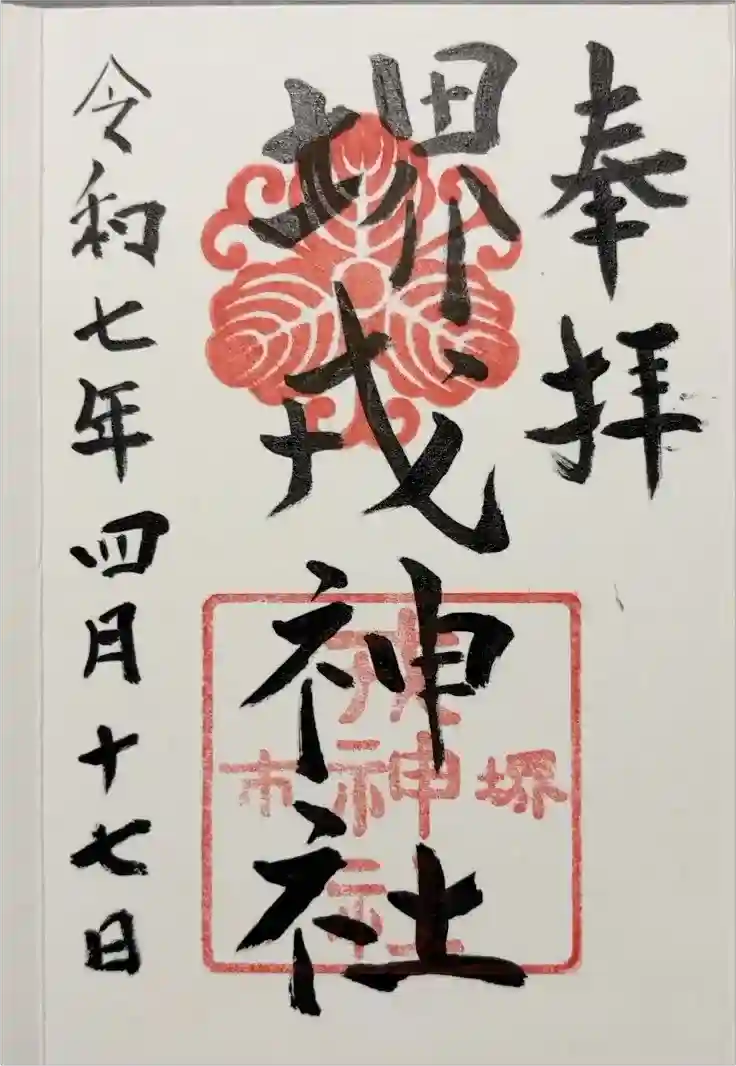 奉拝
堺戎神社
堺
戎神社
市
令和七年四月十七日